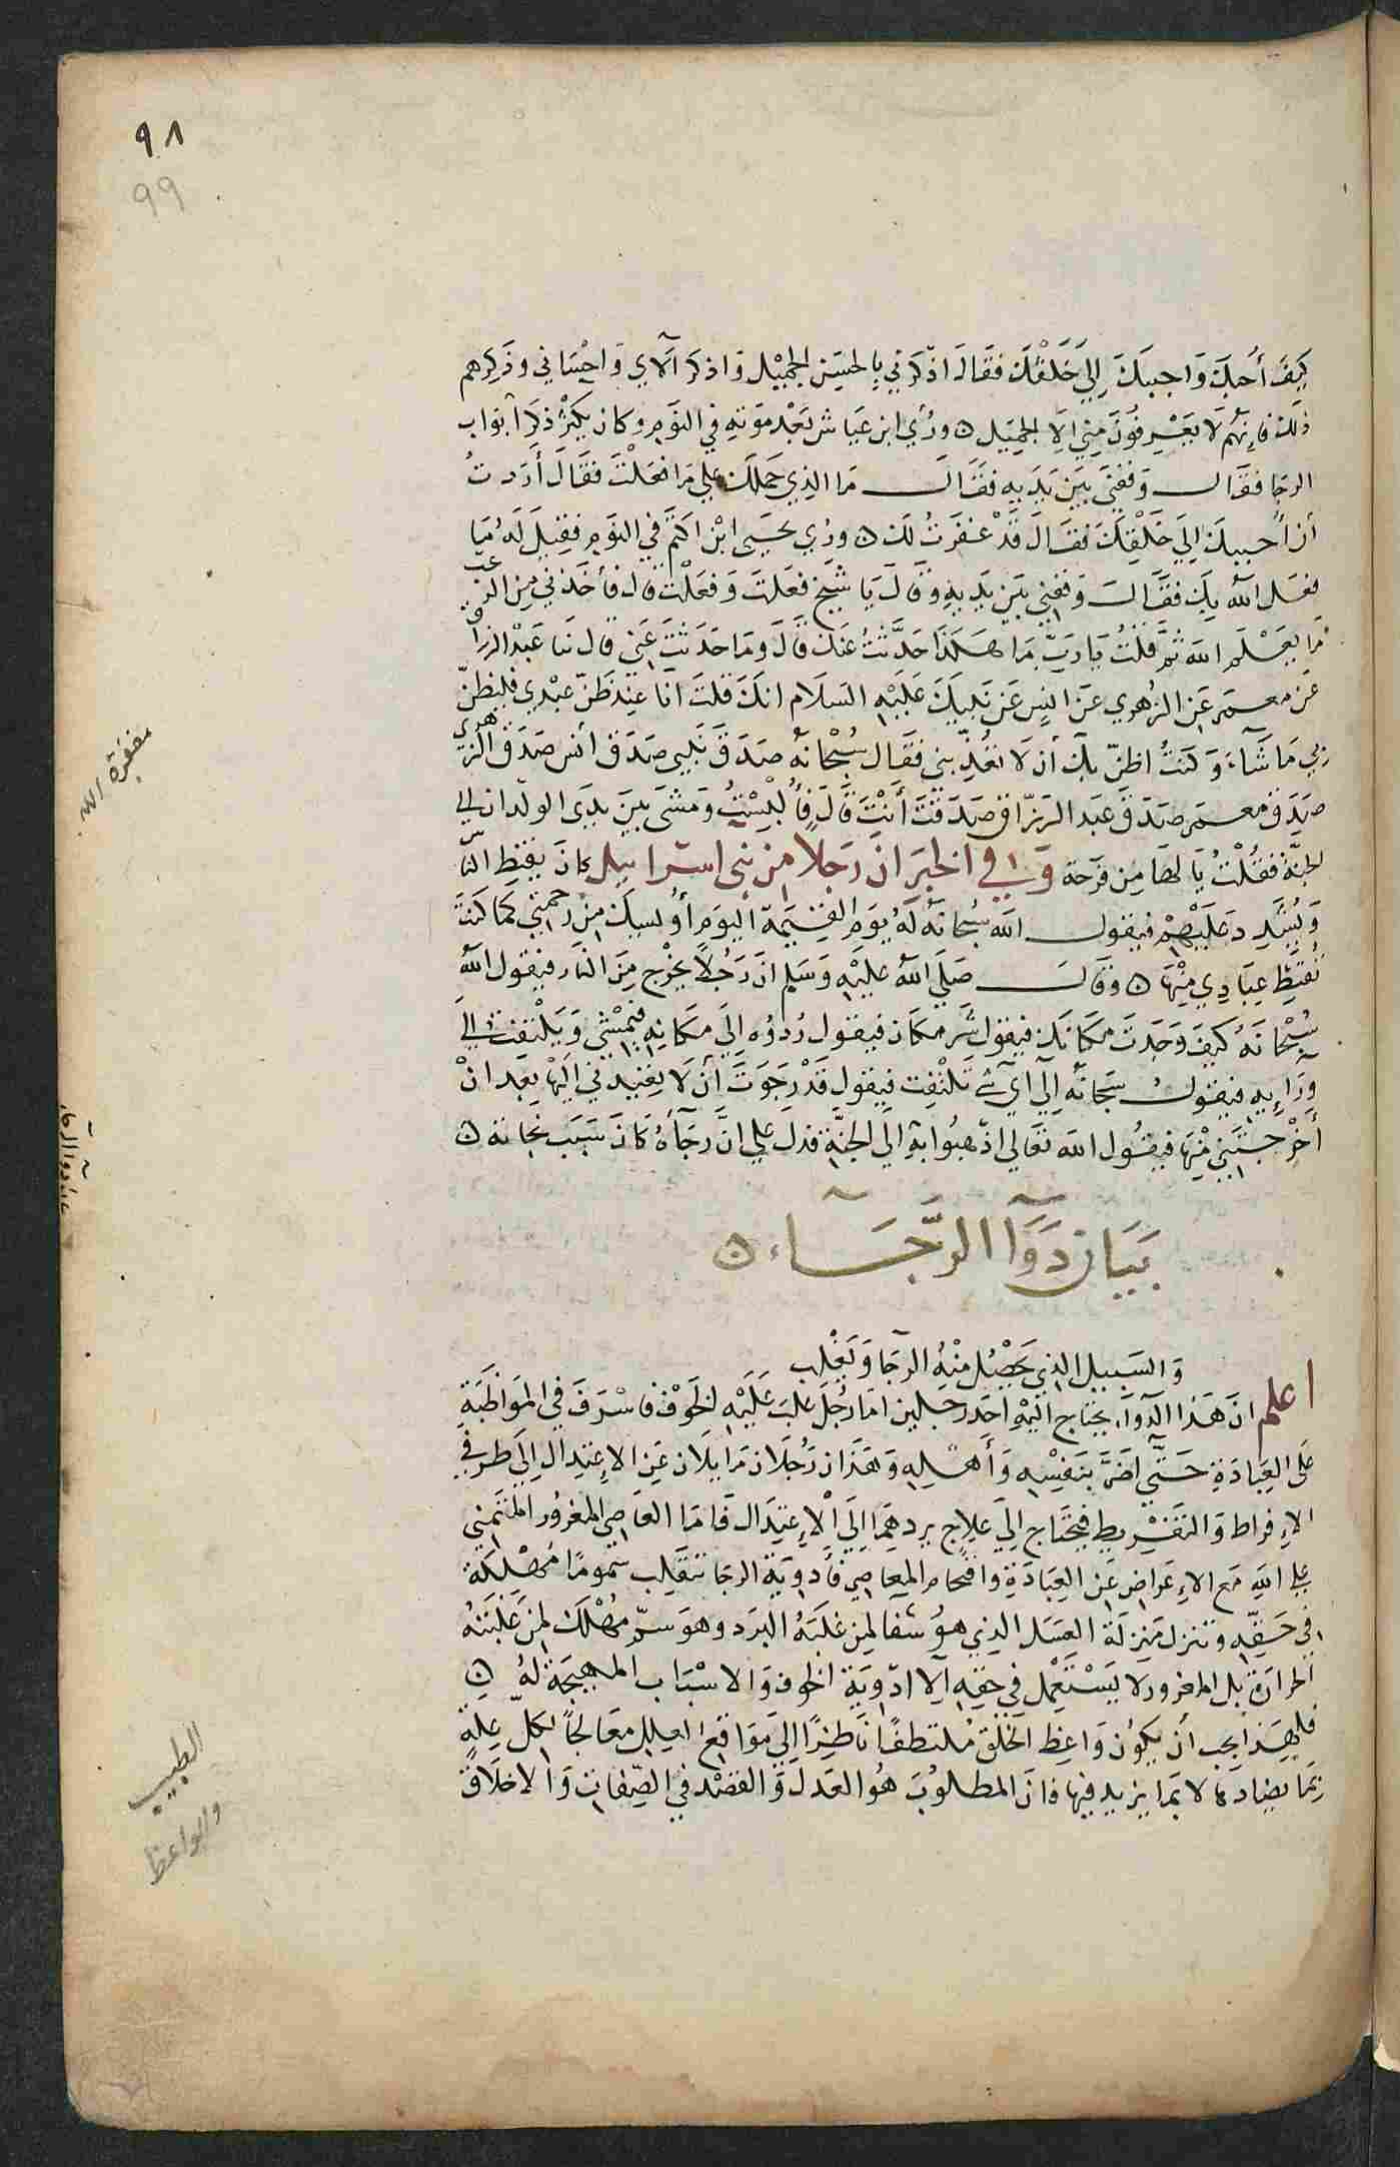 ٩٨
99
كيف أحبك واحببك إلى خلقك فقال اذكرني بالحسن الجميل واذكر آلاي واحساني وذكرهم
ذلك فانهم لا يعرفون مني الا الجميل ه ورُأي ابن عياش بعد موته في النوم وكان يكثر ذكر أبواب
الرجا فقال وقفني بين يديه فقال ما الذي حملك على ما فعلت فقال أردت
أن أحببك إلى خلقك فقال قد غفرت لك ه ورُي يحيى ابن اكثم في النوم فقيل له ما
فعل الله بك فقال وقفني بين يديه وقال يا شيخ فعلت وفعلت قال فأخذني من الرعب
ما يعلم الله ثم قلت يا رب ما هكذا حدثت عنك قال وما حدثت عني قال نبا عبد الرزاق
عن معمر عن الزهري عن انس عن نبيك عليه السلام انك قلت انا عند ظن عبدي فليظن
بي ما شاء وكنت اظن بك أن لا تعذبني فقال سبحانه صدق نبيي صدق أنس صدق الزهري
صدق معمر صدق عبد الرزاق صدقت أنت قال فألبست ومشى بين يدي الولدان الى
الجنة فقلت يا لها من فرحة وفي الخبر ان رجلا من بنى اسرائيل كان يقنط الناس
ويشدد عليهم فيقول الله سبحانه له يوم القيمة اليوم أويسك من رحمتي كما كنت
تقنط عبادي منها ه وقال صلى الله عليه وسلم ان رجلا يخرج من النار فيقول الله
سبحانه كيف وجدت مكانك فيقول شر مكان فيقول ردوه إلى مكانه فيمشي ويلتفت إلى
ورايه فيقول سبحانه إلى اي شي تلتفت فيقول قد رجوت أن لا يعيدني اليها بعد ان
أخرجتني منها فيقول الله تعالى اذهبوا به الى الجنة فدل على ان رجآه كان سبب نجاته ه
بيان دوا الرجاء ه
والسبيل الذي يحصل منه الرجا ويغلب
اعلم ان هذا الدوآء يحتاج اليه احد رجلين اما رجل غلب عليه الخوف فاسرف في المواظبة
على العبادة حتى اضر بنفسه وأهله وهذان رجلان مايلان عن الاعتدال الى طرفي
الافراط والتفريط فيحتاج إلى علاج يردهما إلى الاعتدال فاما العاصي المغرور المتمني
على الله مع الاعراض عن العبادة واقتحام المعاصي فأدوية الرجا تنقلب سموما مهلكة
في حقه وتنزل منزلة العسل الذي هو شفا لمن غلبه البرد وهو سم مهلك لمن غلبته
الحرارة بل المغرور لا يستعمل في حقه الا ادوية الخوف والاسباب المهيجة له ه
فلهذا يجب أن يكون واعظ الخلق متلطفا ناظرا إلى مواقع العلل معالجا لكل علة
بما يضادها لا بما يزيد فيها فان المطلوب هو العدل والقصد في الصفات والاخلاق
مغفرة الله
الطبيب
والواعظ